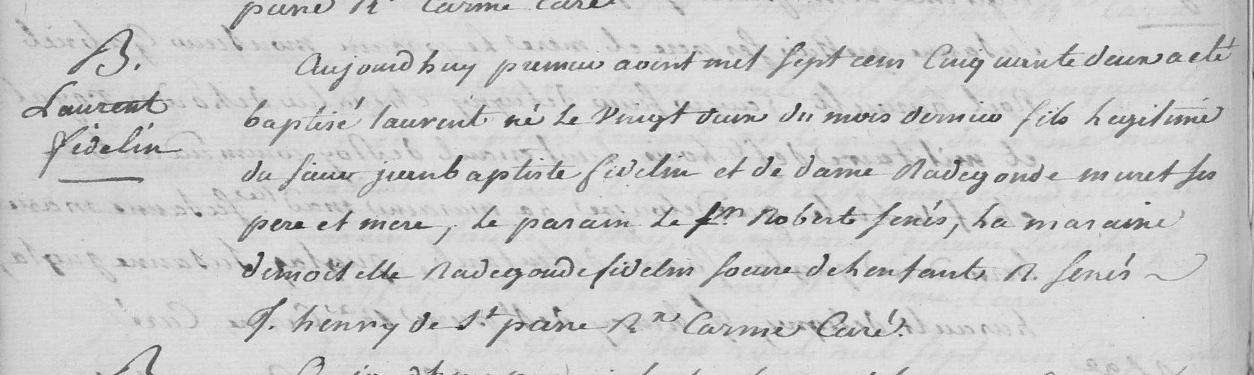 paire R.n Carme Curé
B.
Laurent
fidelin
Aujourd huy premier avint mil sept cens Cinq uante deux a eté
baptisé laurent né le vingt deux du mois dernier fils legitime
du sieur jean baptiste fidelin et de dame Radegonde muret ses
pere et mere, le parain le sr. Robert senés, la maraine
demoiselle Radegonde fidelin soeure de lenfant R. senés
f. henry de St paire R.n Carme Curé.
B